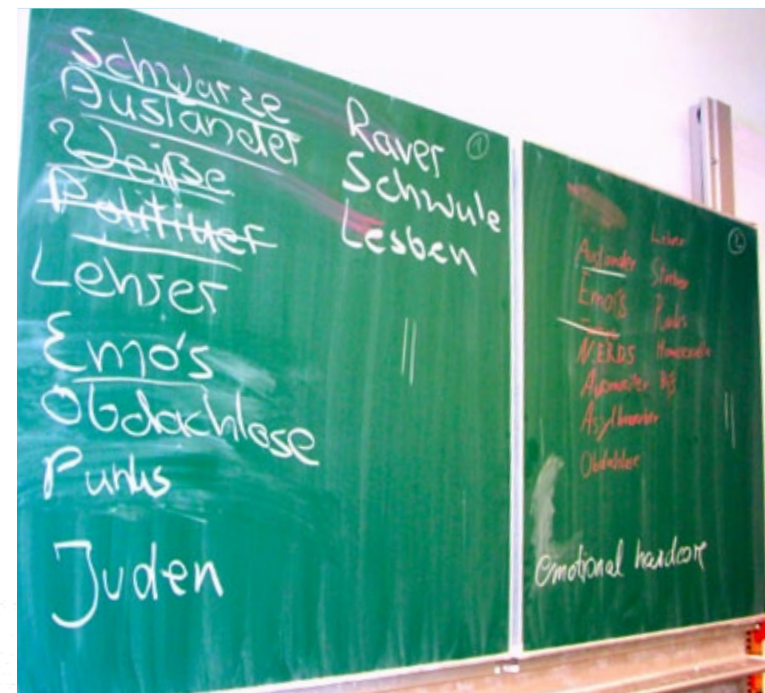 Schwarze
Ausländer
Weiße
Politiker
Lehrer
Emo's
Obdachlose
Punks
Juden
Raver
Schwule
Lesben
1
||
2
Ausländer
Emo's
NERDS
Obdachlose
Lehrer
Streber
Punks
Homosexuelle
||
emotional hardcore